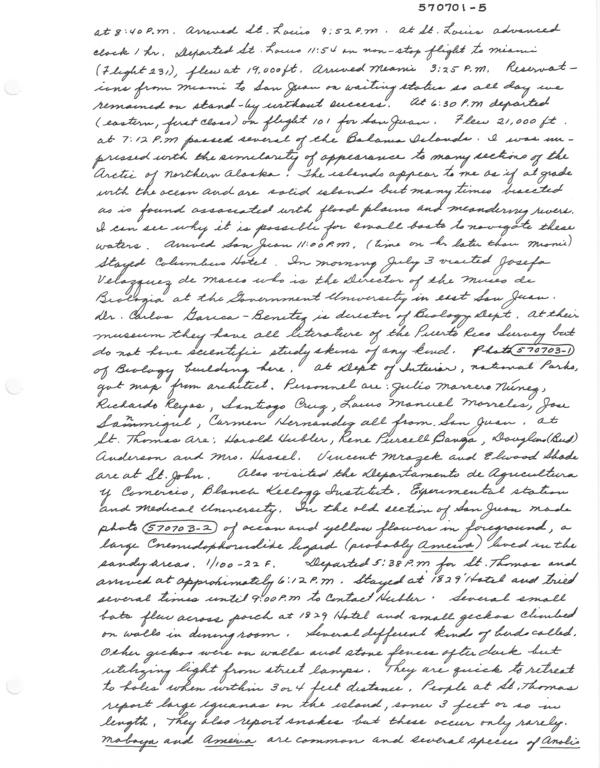 570701-5
at 8:40 P.M. Arrived St. Louis 9:52 P.M. At St. Louis advanced
clock 1 hr. Departed St. Louis 11:54 on non-stop flight to Miami
(Flight 231), flew at 19,000 ft. Arrived Miami 3:25 P.M. Reservat-
ions from Miami to San Juan on waiting status so all day we
remained on stand-by without success. At 6:30 P.M departed
(eastern, first class) on flight 101 for San Juan. Flew 21,000 ft.
at 7:12 P.M passed several of the Bahama Islands. I was im-
pressed with the similarity of appearance to many sections of the
Arctic of Northern Alaska. The islands appear to me as if at grade
with the ocean and are solid islands but many times bisected
as is found associated with flood plains and meandering rivers.
I can see why it is possible for small boats to navigate these
waters. Arrived San Juan 11:00 P.M. (time on hr later than Miami)
Stayed Columbus Hotel. In morning July 3 visited Josefa
Velazquez de Maceo who is the Director of the Museo de
Biologia at the Government University in east San Juan.
Dr. Carlos Garica-Benitez is director of Biology Dept. At their
museum they have all literature of the Puerto Rico Survey but
do not have scientific study skins of any kind. Photo 570703-1
of Biology building here. At Dept of Interior, national Parks,
got map from architect. Personnel are: Julio Marrero Núnez,
Richardo Reyas, Santiago Cruz, Louis Manuel Morreles, Jose
Sanmiguil, Carmen Hernandez all from San Juan. At
St. Thomas are: Harold Hubler, Rene Purcell Banga, Douglas (Bud)
Anderson and Mrs. Hassel. Vincent Mrazek and Elwood Shade
are at St. John. Also visited the Departamento de Agricultura
y Comercio, Blanch Kellogg Institute, Experimental station
and Medical University. In the old section of San Juan made
photo 570703-2 of ocean and yellow flowers in foreground, a
large Cnemidophoruslike lizard (probably Ameiva) lived in the
sandy areas. 1/100-22 F. Departed 5:38 P.M for St. Thomas and
arrived at approximately 6:12 P.M. Stayed at '1829' Hotel and tried
several times until 9:00 P.M to contact Hubler. Several small
bats flew across porch at 1829 Hotel and small geckos climbed
on walls in dining room. Several different kinds of birds called.
Other geckos were on walls and stone fences after dark but
utilizing light from street lamps. They are quick to retreat
to holes when within 3 or 4 feet distance. People at St. Thomas
report large iguanas on the island, some 3 feet or so in
length. They also report snakes but these occur only rarely.
Mabuya and Ameiva are common and several species of Anolis